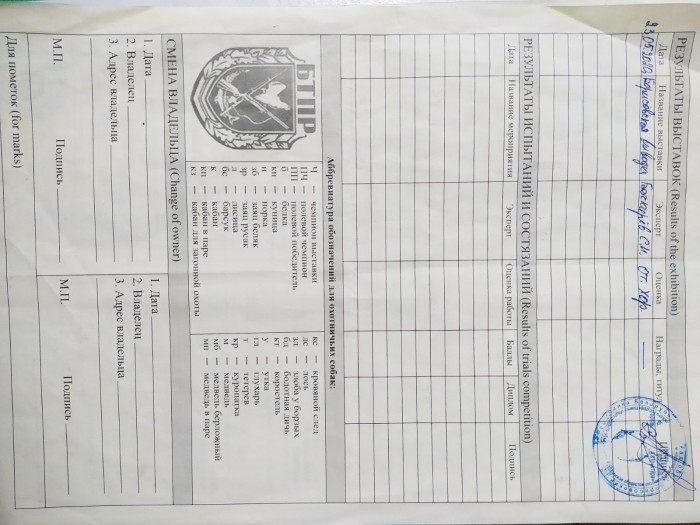 РЕЗУЛЬТАТЫ ВЫСТАВОК (Results of the exhibition)
Дата Название выставки Эксперт Оценка Награды, титул
23.05.2020 Борисовская выводка С.И. от. хор —
РЕЗУЛЬТАТЫ ИСПЫТАНИЙ И СОСТЯЗАНИЙ (Results of trials competition)
Дата Название мероприятия Эксперт Оценка работы Баллы Диплом Подпись
Аббревиатура обозначений для охотничьих собак:
БТПР
Ч — чемпион выставки
ПЧ — полевой чемпион
ПП — полевой победитель
б — белка
кн — куница
н — норка
зб — заяц беляк
зр — заяц русак
л — лисица
бс — барсук
к — кабан
кп — кабан в паре
кз — кабан для загонной охоты
кс — кровяной след
лс — лось
зл — злоба у борзых
бд — болотная дичь
кт — коростель
у — утка
гл — глухарь
т — тетерев
кр — куропатка
м — медведь
мб — медведь берложный
мп — медведь в паре
СМЕНА ВЛАДЕЛЬЦА (Change of owner)
1. Дата
2. Владелец
3. Адрес владельца
М.П. Подпись
1. Дата
2. Владелец
3. Адрес владельца
М.П. Подпись
Для пометок (for marks)